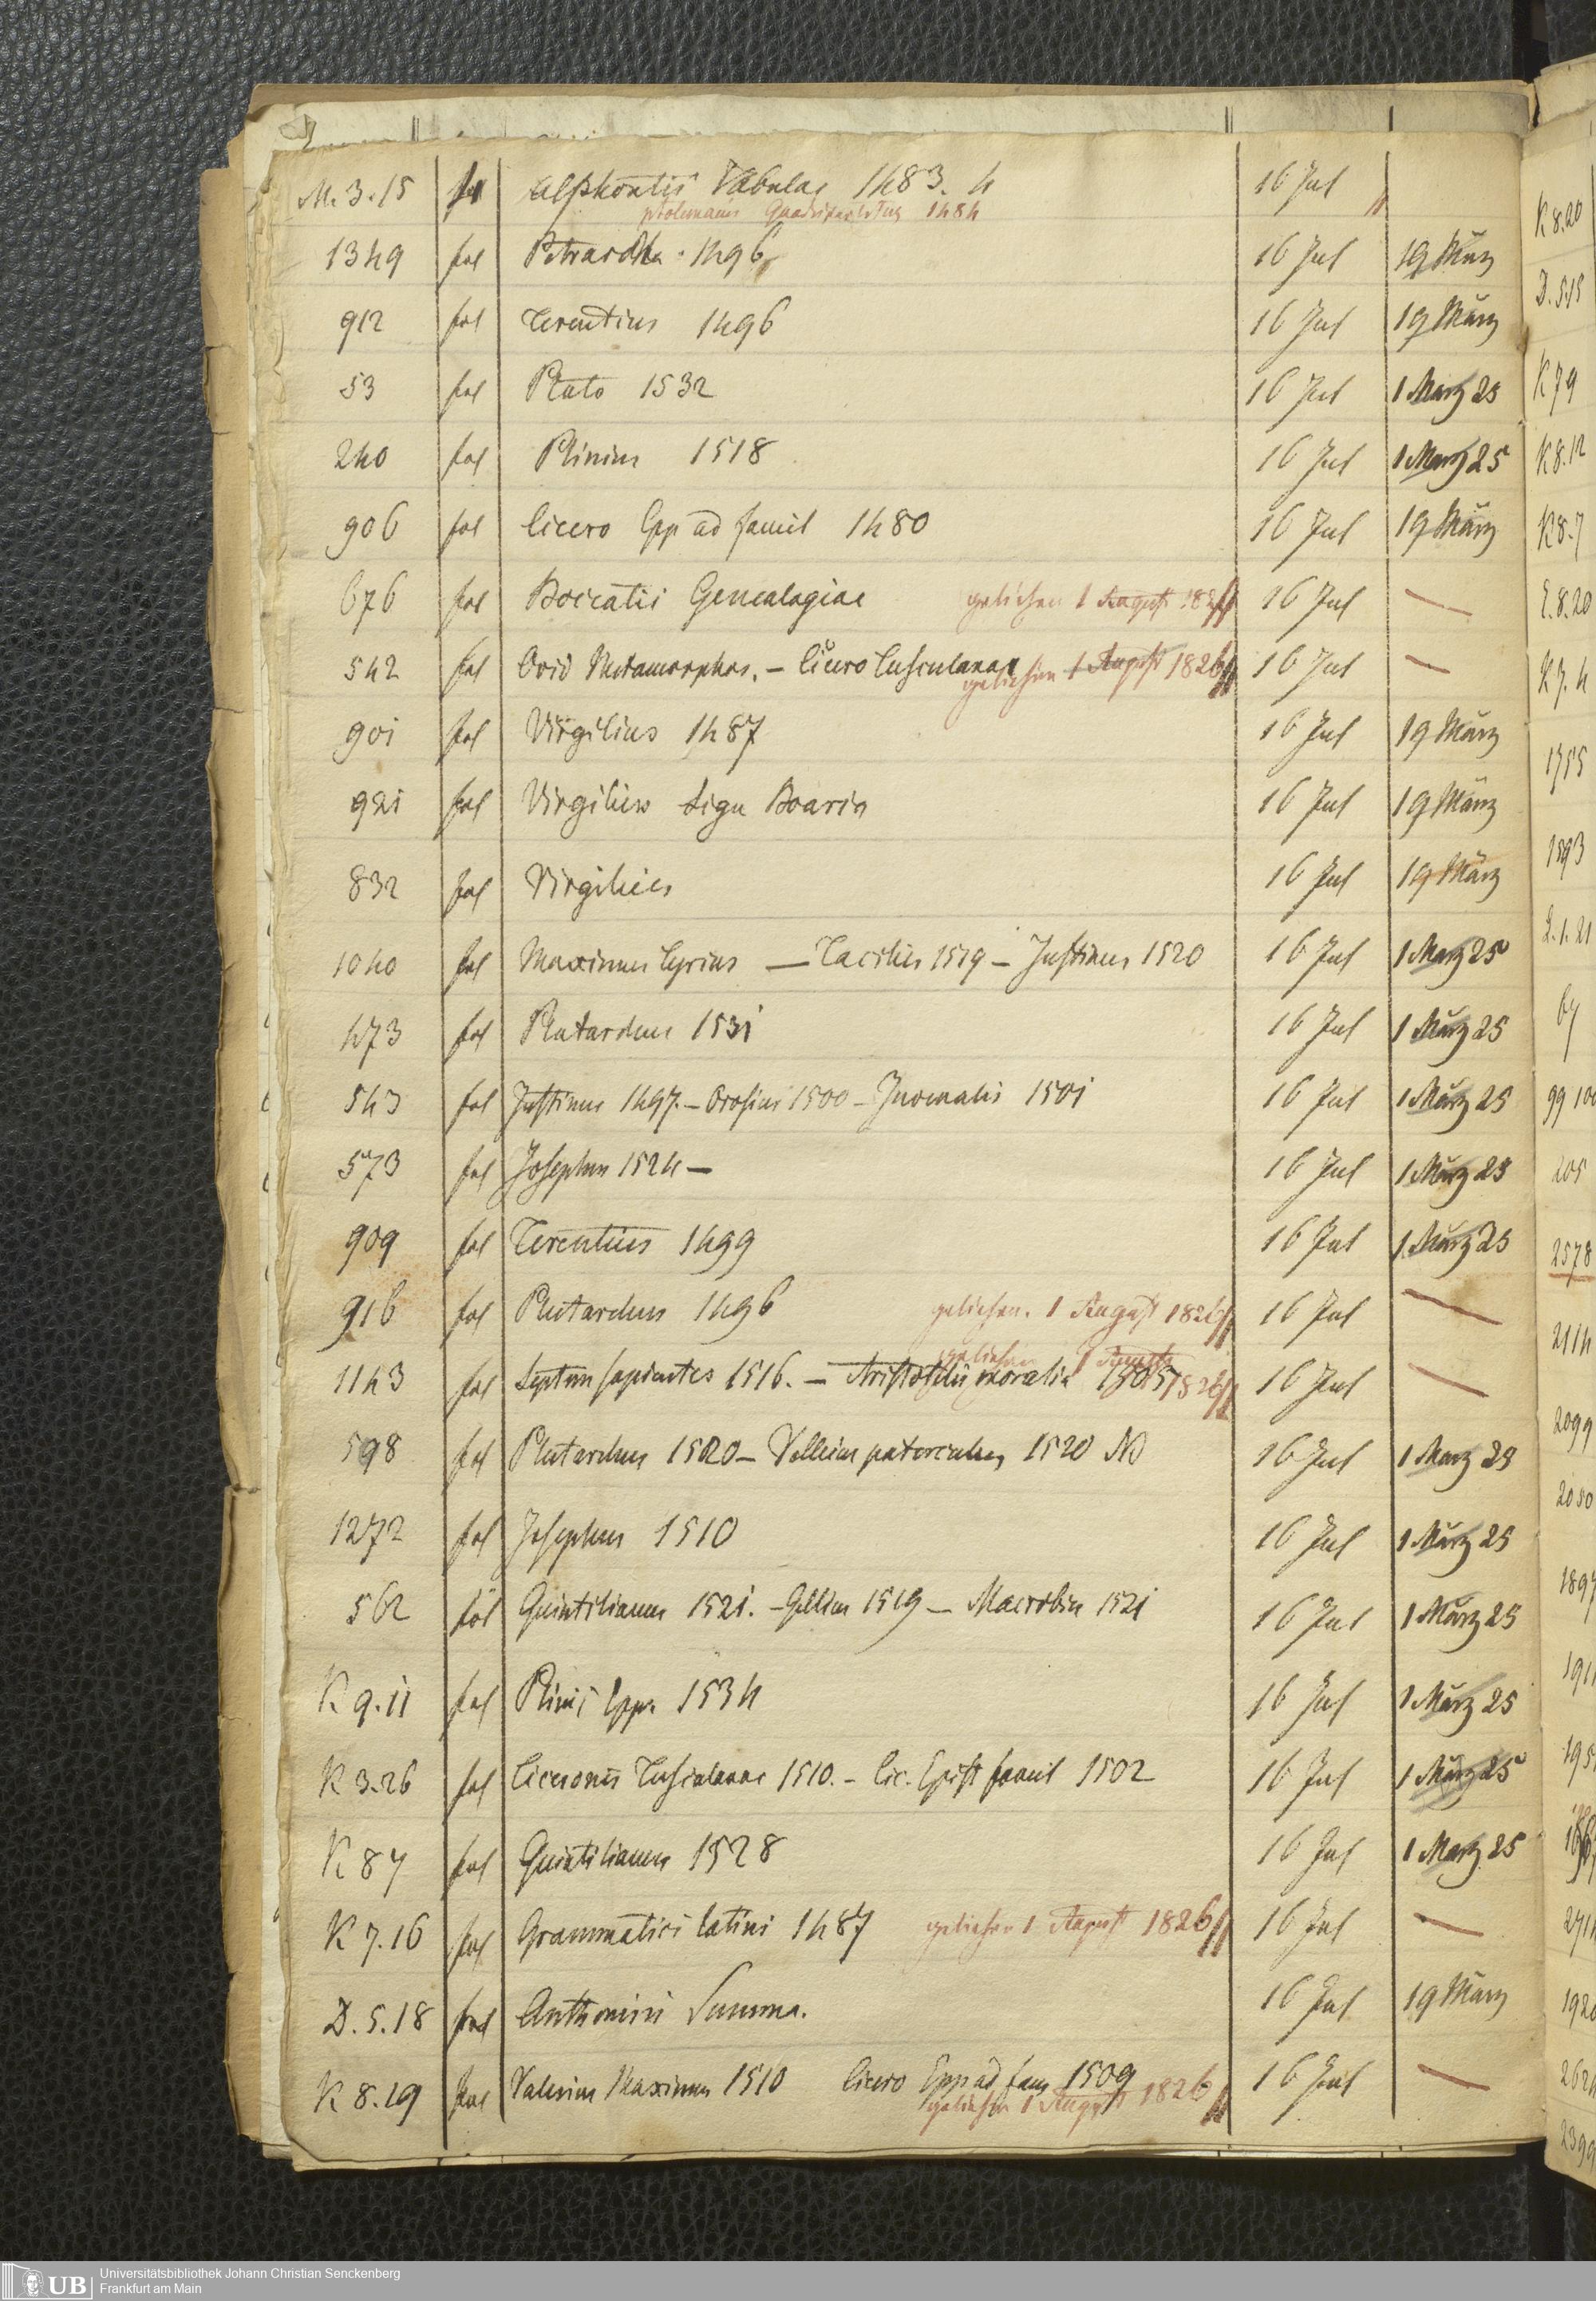 M. 3.15 fol Alphontii Tabulae 1483. 4 16 Jul
ptolemaeus Quadripartitus 1484
1349 fol Petrarcha 1496 16 Jul 19 März
912 fol Terentius 1496 16 Jul 19 März
53 fol Plato 1532 16 Jul 1 März 25
240 fol Plinius 1518 16 Jul 1 März 25
906 fol Cicero Epp ad famil 1480 16 Jul 19 März
676 fol Boccatii Genealogiae geliehen 1 August 1826 16 Jul —
542 fol Ovid Metamorphos. – Cicero Tusculanae 16 Jul —
geliehen 1 August 1826
901 fol Virgilius 1487 16 Jul 19 März
921 fol Virgilius Boaria 16 Jul 19 März
832 fol Virgilius 16 Jul 19 März
1040 fol Maximus Tyrius — Tacitus 1519 – Justinus 1520 16 Jul 1 März 25
473 fol Plutarchus 1531 16 Jul 1 März 25
543 fol Justinus 1497. – Orosius 1500 – Juvenalis 1501 16 Jul 1 März 25
573 fol Josephus 1524 – 16 Jul 1 März 25
909 fol Terentius 1499 16 Jul 1 März 25
916 fol Plutarchus 1496 geliehen. 1 August 1826 16 Jul —
geliehen 1 August
1143 fol Septem sapientes 1516. – Aristotelis moralia 1505 1826 16 Jul —
598 fol Plutarchus 1520 – Velleius paterculus 1520 16 Jul 1 März 25
1272 fol Josephus 1510 16 Jul 1 März 25
562 fol Quintilianus 1521. – Gellius 1519 – Macrobius 1521 16 Jul 1 März 25
K 9.11 fol Plinii Epp. 1534 16 Jul 1 März 25
K 3.26 fol Ciceronis Tusculanae 1510. – Cic. Epist famil 1502 16 Jul 1 März 25
K 87 fol Quintilianus 1528 16 Jul 1 März 25
K 7.16 fol Grammatici latini 1487 geliehen 1 August 1826 16 Jul —
D. 5.18 fol Anthonini Summa. 16 Jul 19 März
K 8.19 fol Valerius Maximus 1510 Cicero Epp ad fam 1509 16 Jul —
geliehen 1 August 1826
K 8.20
D. 5.15
K 79
K 8.12
K 8.7
E. 8.20
K 7.4
1755
1593
2.1.21
67
99 100
205
2578
2114
2099
2050
UB Universitätsbibliothek Johann Christian Senckenberg
Frankfurt am Main